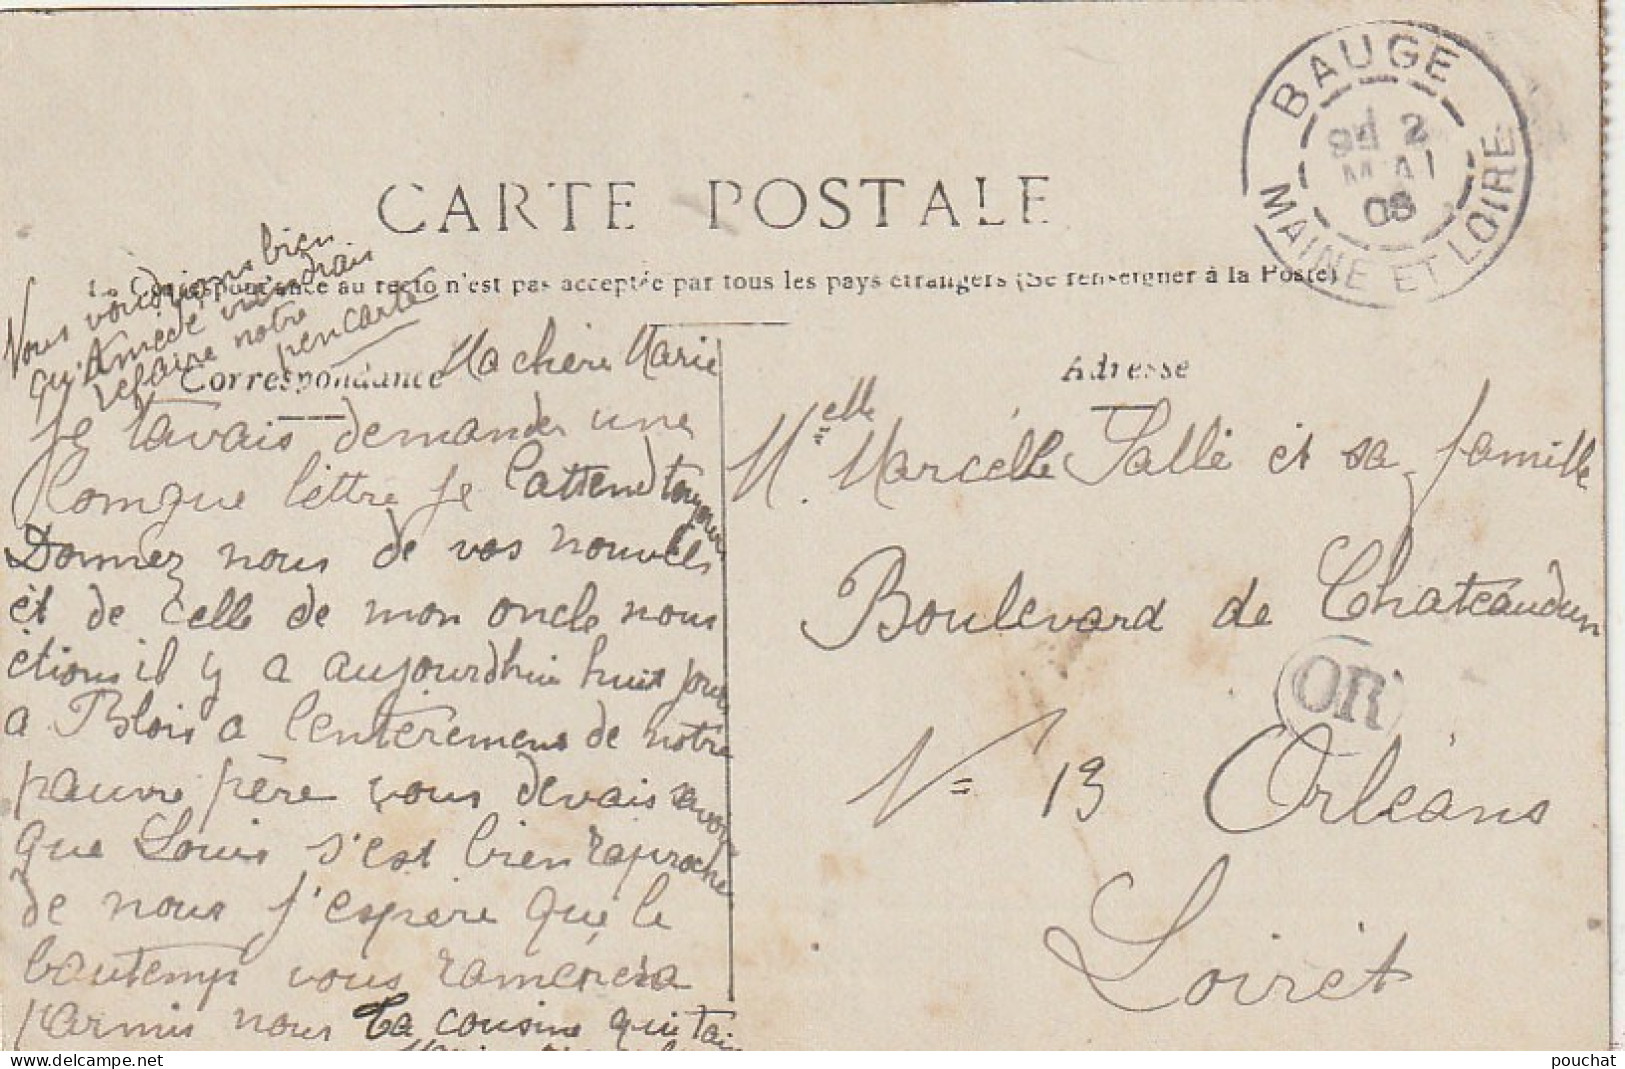 BAUGE
9E 2
MAI
08
MAINE ET LOIRE
CARTE POSTALE
La Correspondance au recto n'est pas acceptée par tous les pays étrangers (Se renseigner à la Poste)
Nous voudrions bien
qu'Amedé viendrais
refaire notre
pencarte
Correspondance
Ma chère Marie
Je tavais demander une
longue lettre je l'attend toujours
Donnez nous de vos nouvelles
et de celle de mon oncle nous
étions il y a aujourdhui huit jours
a Blois a l'enterement de notre
pauvre père vous devais savoir
que Louis s'est bien raproché
de nous j'espère que le
bautemps vous ramenera
parmis nous Ta cousine qui t'aime
Adresse
Melle Marcelle Sallé et sa famille
Boulevard de Chateaudun
OR
N= 13 Orléans
Loiret
delcampe.net
pouchat